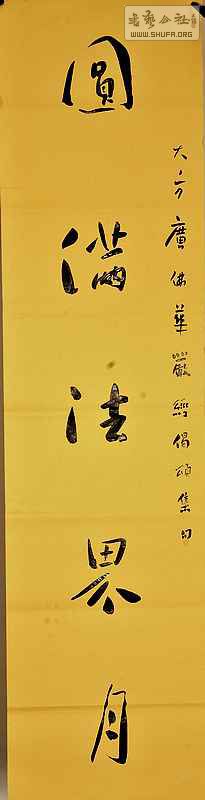 書藝公社
WWW.SHUFA.ORG
大方廣佛華嚴經偈頌集句
圓滿法界月